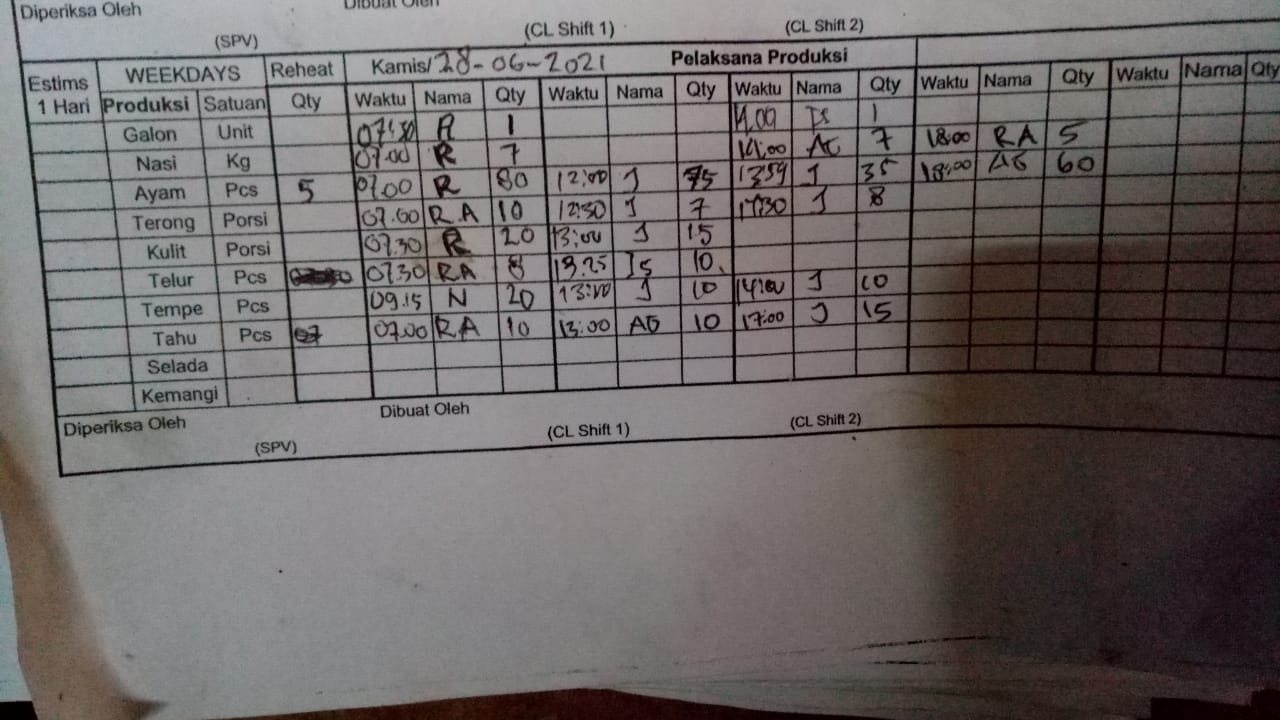 Diperiksa Oleh Dibuat Oleh
(SPV) (CL Shift 1) (CL Shift 2)
Estims 1 Hari WEEKDAYS Reheat Kamis/ 28-06-2021 Pelaksana Produksi
Produksi Satuan Qty Waktu Nama Qty Waktu Nama Qty Waktu Nama Qty Waktu Nama Qty Waktu Nama Qty
Galon Unit 07:30 R 1 1
Nasi Kg 07.00 R 7 14:00 AG 7 18:00 RA 5
Ayam Pcs 5 07.00 R 80 12:00 J 75 13:59 J 35 18:00 AG 60
Terong Porsi 07.00 RA 10 12:30 J 7 17:30 J 8
Kulit Porsi 07.30 R 20 13:00 J 15
Telur Pcs 07.30 RA 8 13.25 Is 10
Tempe Pcs 09.15 N 20 13:00 J 10 14:00 J 10
Tahu Pcs 07.00 RA 10 13:00 AG 10 17:00 J 15
Selada
Kemangi
Diperiksa Oleh Dibuat Oleh
(SPV) (CL Shift 1) (CL Shift 2)